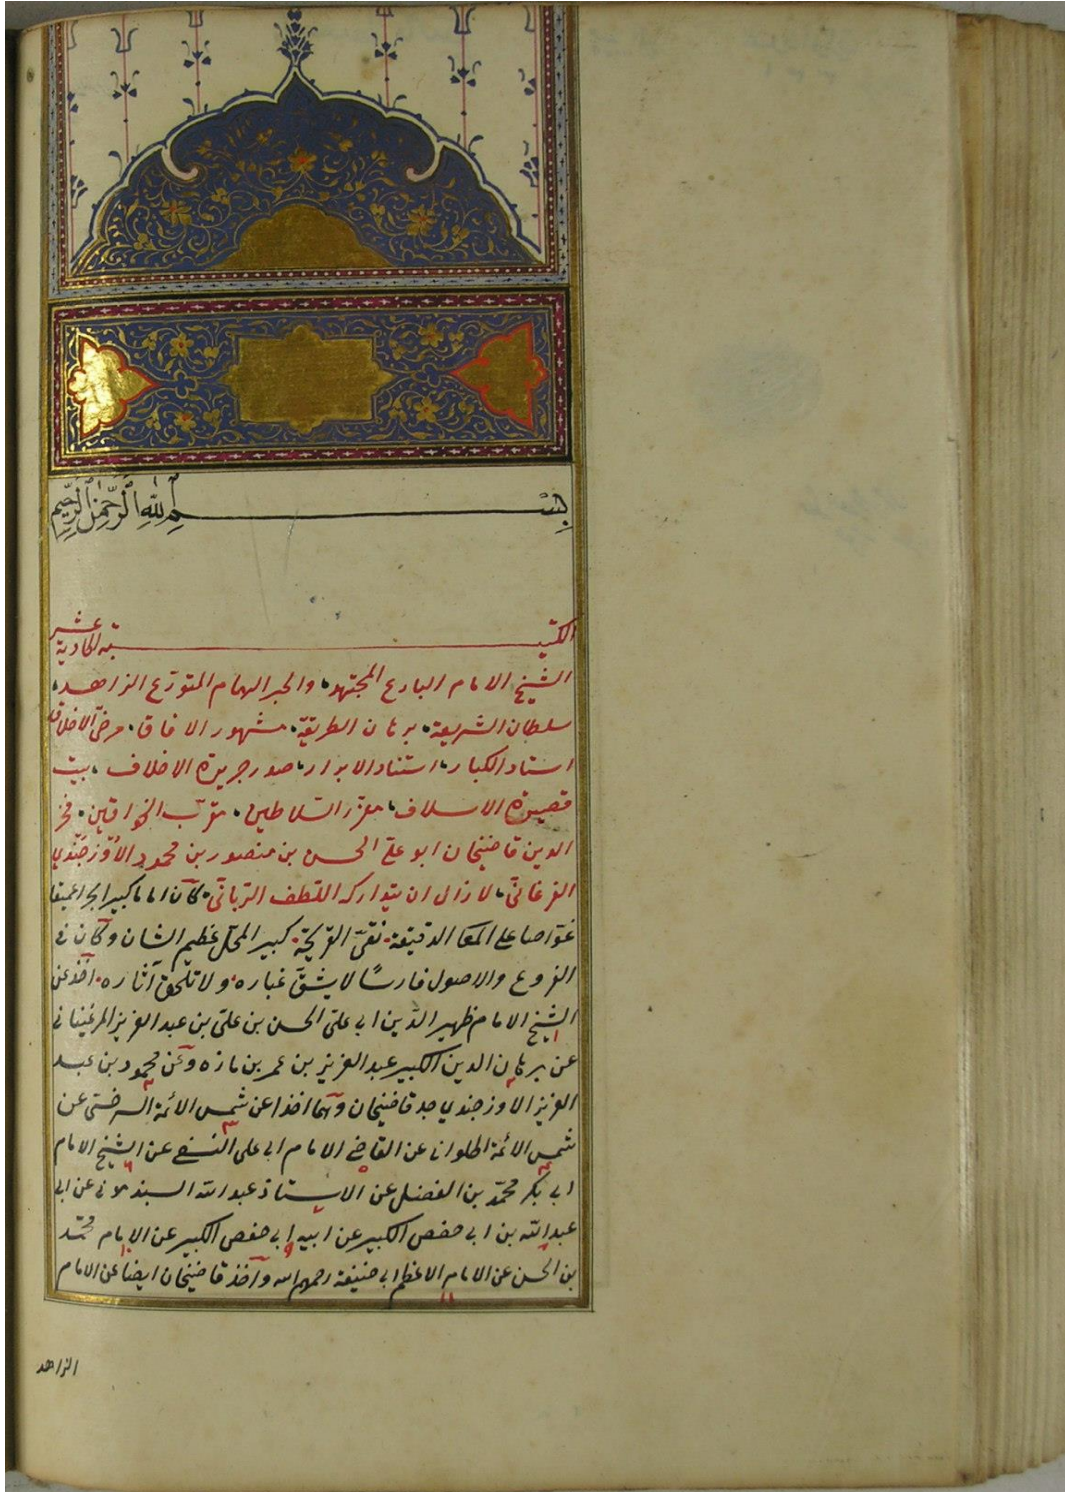 بسم الله الرحمن الرحيم
الكتيبة الحادية عشر
الشيخ الامام البارع المجتهد، والحبر الهمام المتورّع الزاهد،
سلطان الشريعة، برهان الطريقة، مشهور الافاق، مرضىّ الاخلاق
استاد الكبار، استناد الابرار، صدر جريدة الاخلاف، بيت
قصيدة الاسلاف، معزز السّلاطين، مقرّب الخواقين، فخر
الدين قاضيخان ابو على الحسن بن منصور بن محمود الأوزجندي
الفرغانى، لازال ان يتداركه اللّطف الرّبانى، كان اماما كبيرا بحرا عميقا
غوّاصا على المعانى الدقيقة، نقىّ القريحة، كبير المحلّ عظيم الشان وكان فى
الفروع والاصول فارسًا لا يشقّ غباره، ولا تلحق آثاره، اخذ عن
الشيخ الامام ظهير الدّين ابى علىّ الحسن بن علىّ بن عبد العزيز المرغينانى
عن برهان الدين الكبير عبد العزيز بن عمر بن مازه وعن محمود بن عبد
العزيز الاوزجندي جد قاضيخان وهما اخذا عن شمس الائمة السرخسى عن
شمس الائمة الحلوانى عن القاضى الامام ابى على النسفى عن الشيخ الامام
ابى بكر محمّد بن الفضل عن الاستاذ عبد الله السبذمونى عن ابى
عبد الله بن ابى حفص الكبير عن ابيه ابى حفص الكبير عن الامام محمّد
بن الحسن عن الامام الاعظم ابى حنيفة رحمهم الله واخذ قاضيخان ايضا عن الامام
الزاهد